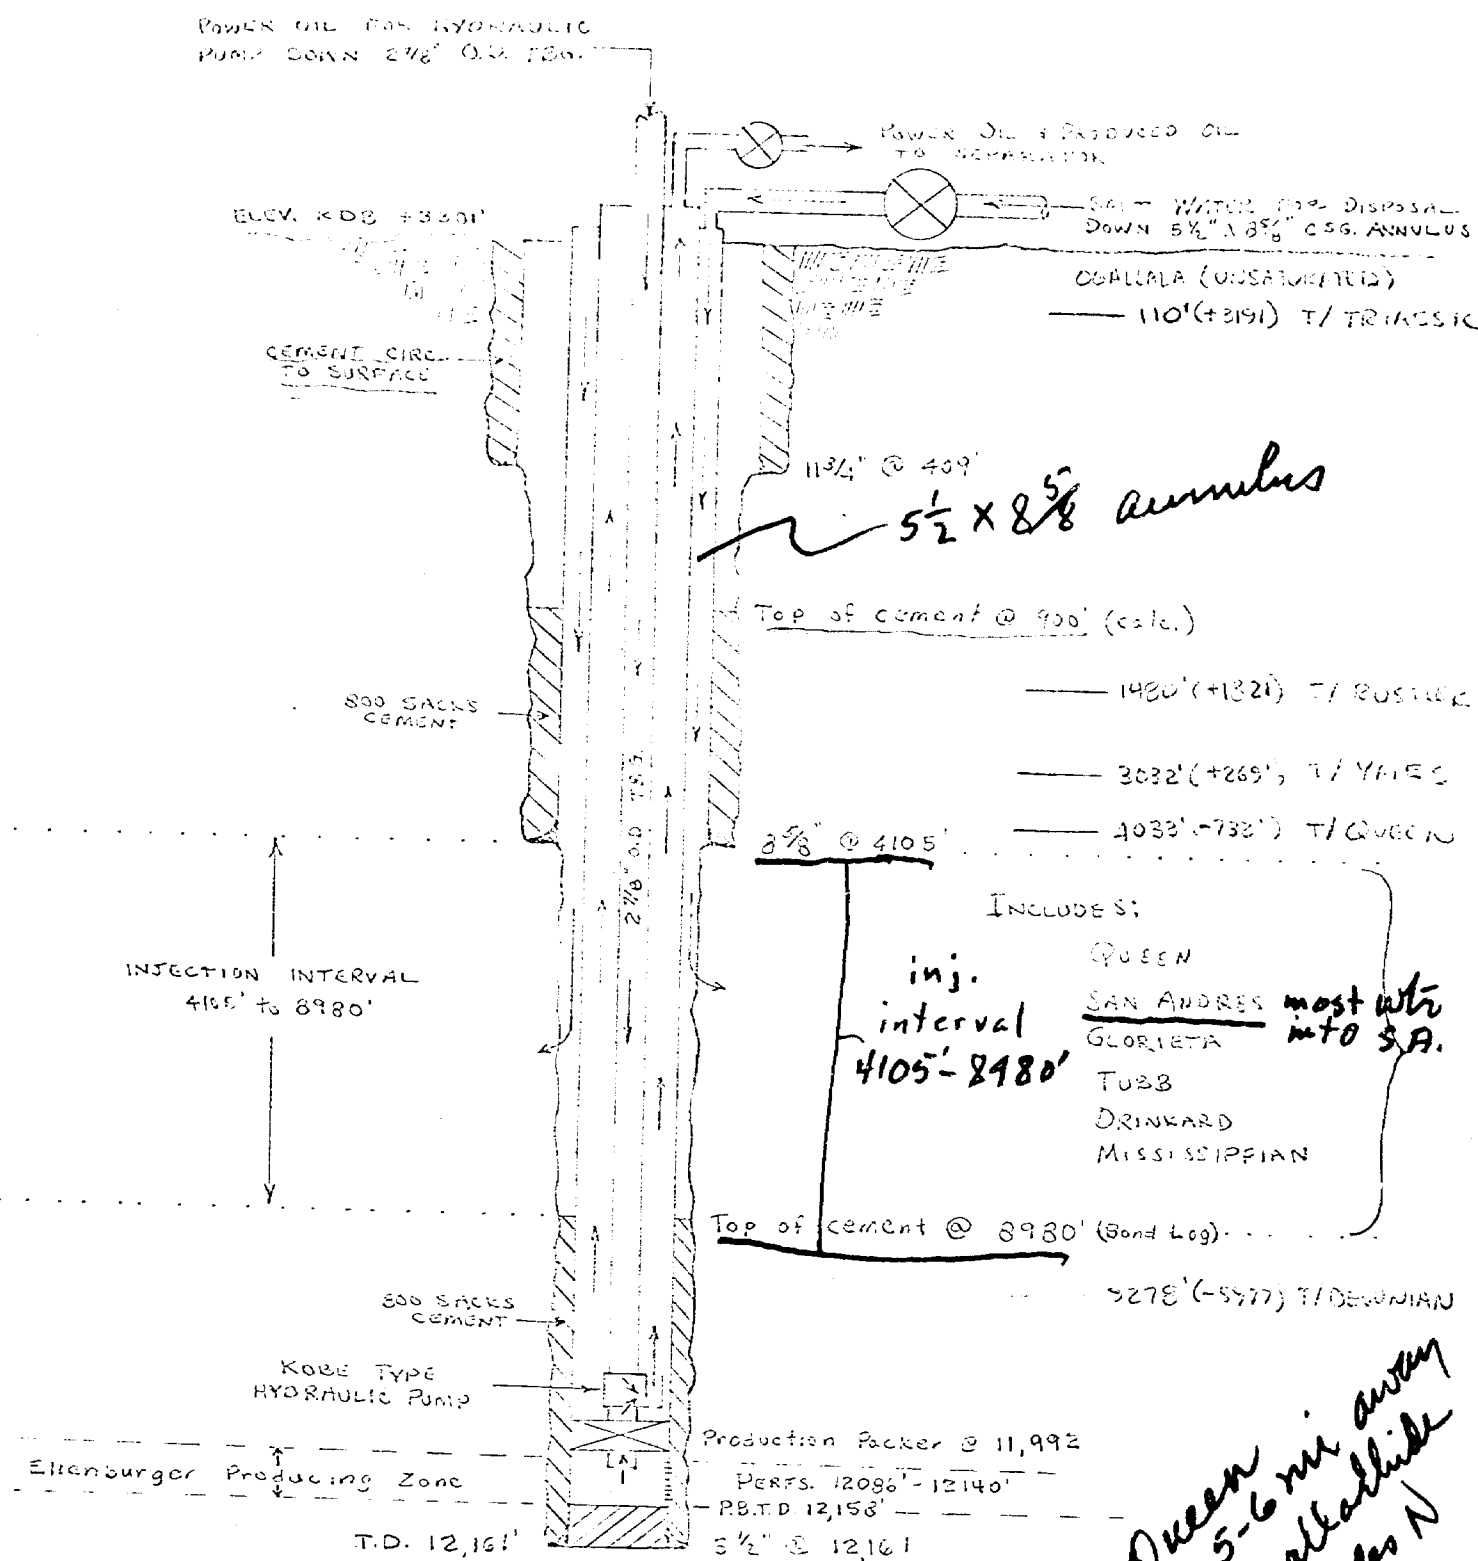 POWER OIL FOR HYDRAULIC
PUMP DOWN 2 7/8" O.D. TBG.
POWER OIL & PRODUCED OIL
TO SEPARATOR
SALT WATER FOR DISPOSAL
DOWN 5½" X 8⅝" CSG. ANNULUS
ELEV. KDB +3301'
OGALLALA (UNSATURATED)
110' (+3191) T/ TRIASSIC
CEMENT CIRC.
TO SURFACE
11¾" @ 409'
5½ X 8⅝ annulus
Top of cement @ 900' (calc.)
1480' (+1821) T/ RUSTLER
800 SACKS
CEMENT
3032' (+269') T/ YATES
2 7/8" O.D. TBG.
4033' (-732') T/ QUEEN
8⅝" @ 4105'
INCLUDES:
QUEEN
SAN ANDRES most wtr
into S.A.
GLORIETA
TUBB
DRINKARD
MISSISSIPPIAN
INJECTION INTERVAL
4105' to 8980'
inj.
interval
4105'-8980'
Top of cement @ 8980' (Bond Log)
9278' (-5977) T/ DEVONIAN
800 SACKS
CEMENT
KOBE TYPE
HYDRAULIC PUMP
Production Packer @ 11,992
Ellenburger Producing Zone
PERFS. 12086' - 12140'
P.B.T.D. 12,158'
T.D. 12,161'
5½" @ 12,161
Queen
5-6 mi away
N